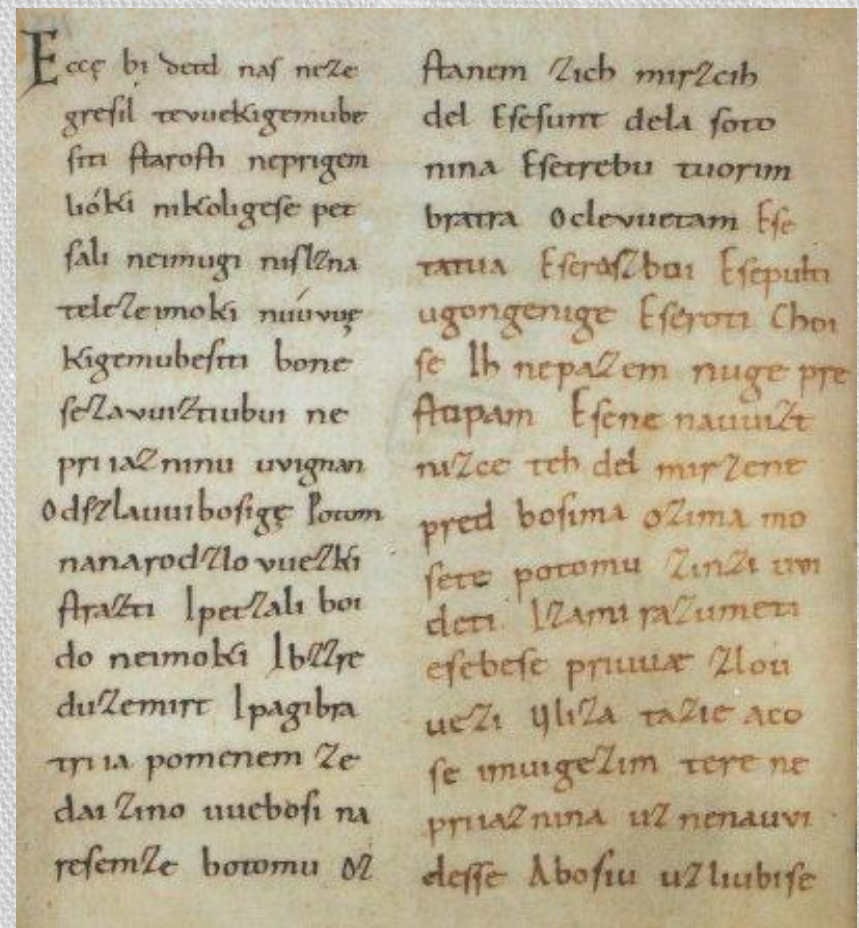 Eccę bi detd naſ neze
greſil tevuekigemube
ſiti ſtaroſti neprigem
lióki nikoligeſe pet
ſali neimugi niſlzna
telezeimoki núuvuę
kigemubeſiti bone
ſezavuiztiubui ne
pri iazninu uvignan
Odſzlauuiboſigę Potom
nanarodzlovuezki
ſtrazti Ipetzali boi
do neimoki Ibzzre
duzemirt Ipagibra
tri ia pomenem ze
dai zino uueboſi na
reſemze botomu oz
ſtanem zich mirzcih
del Eſeſunt dela ſoto
nina Eſetrebu tuorim
bratra Oclevuetam Eſe
tatua Eſerazboi Eſepulti
ugongenige Eſeroti Choi
ſe Ih nepazem nuge pre
ſtupam Eſene nauuizt
nizce teh del mirzene
pred boſima ozima mo
ſete potomu zinzi uvi
deti Izami razumeti
eſebeſe priuuæ zlou
uezi Yliza tazie aco
ſe imuigezim tere ne
priiaznina uz nenauvi
deſſe Aboſiu uzliubiſe